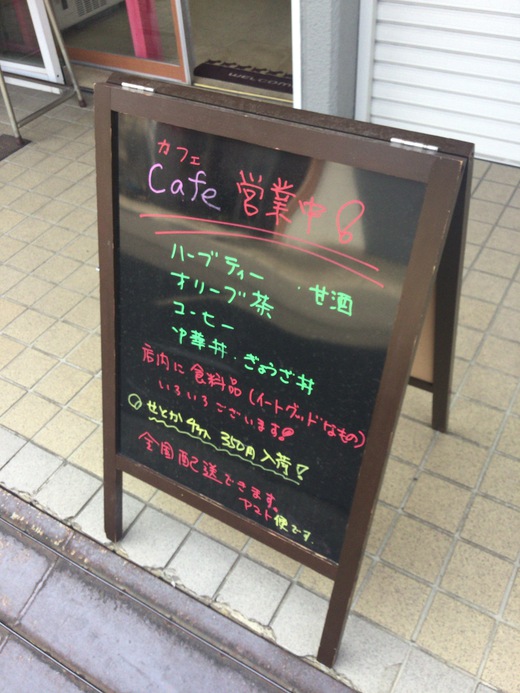 WELCOME
カフェ
Cafe 営業中!
ハーブティー ・甘酒
オリーブ茶
コーヒー
中華丼・ぎょうざ丼
店内に食料品(イートグッドなもの)
いろいろございます!
せとか 4コ入 350円 入荷!
全国配送できます。
ヤマト便です.